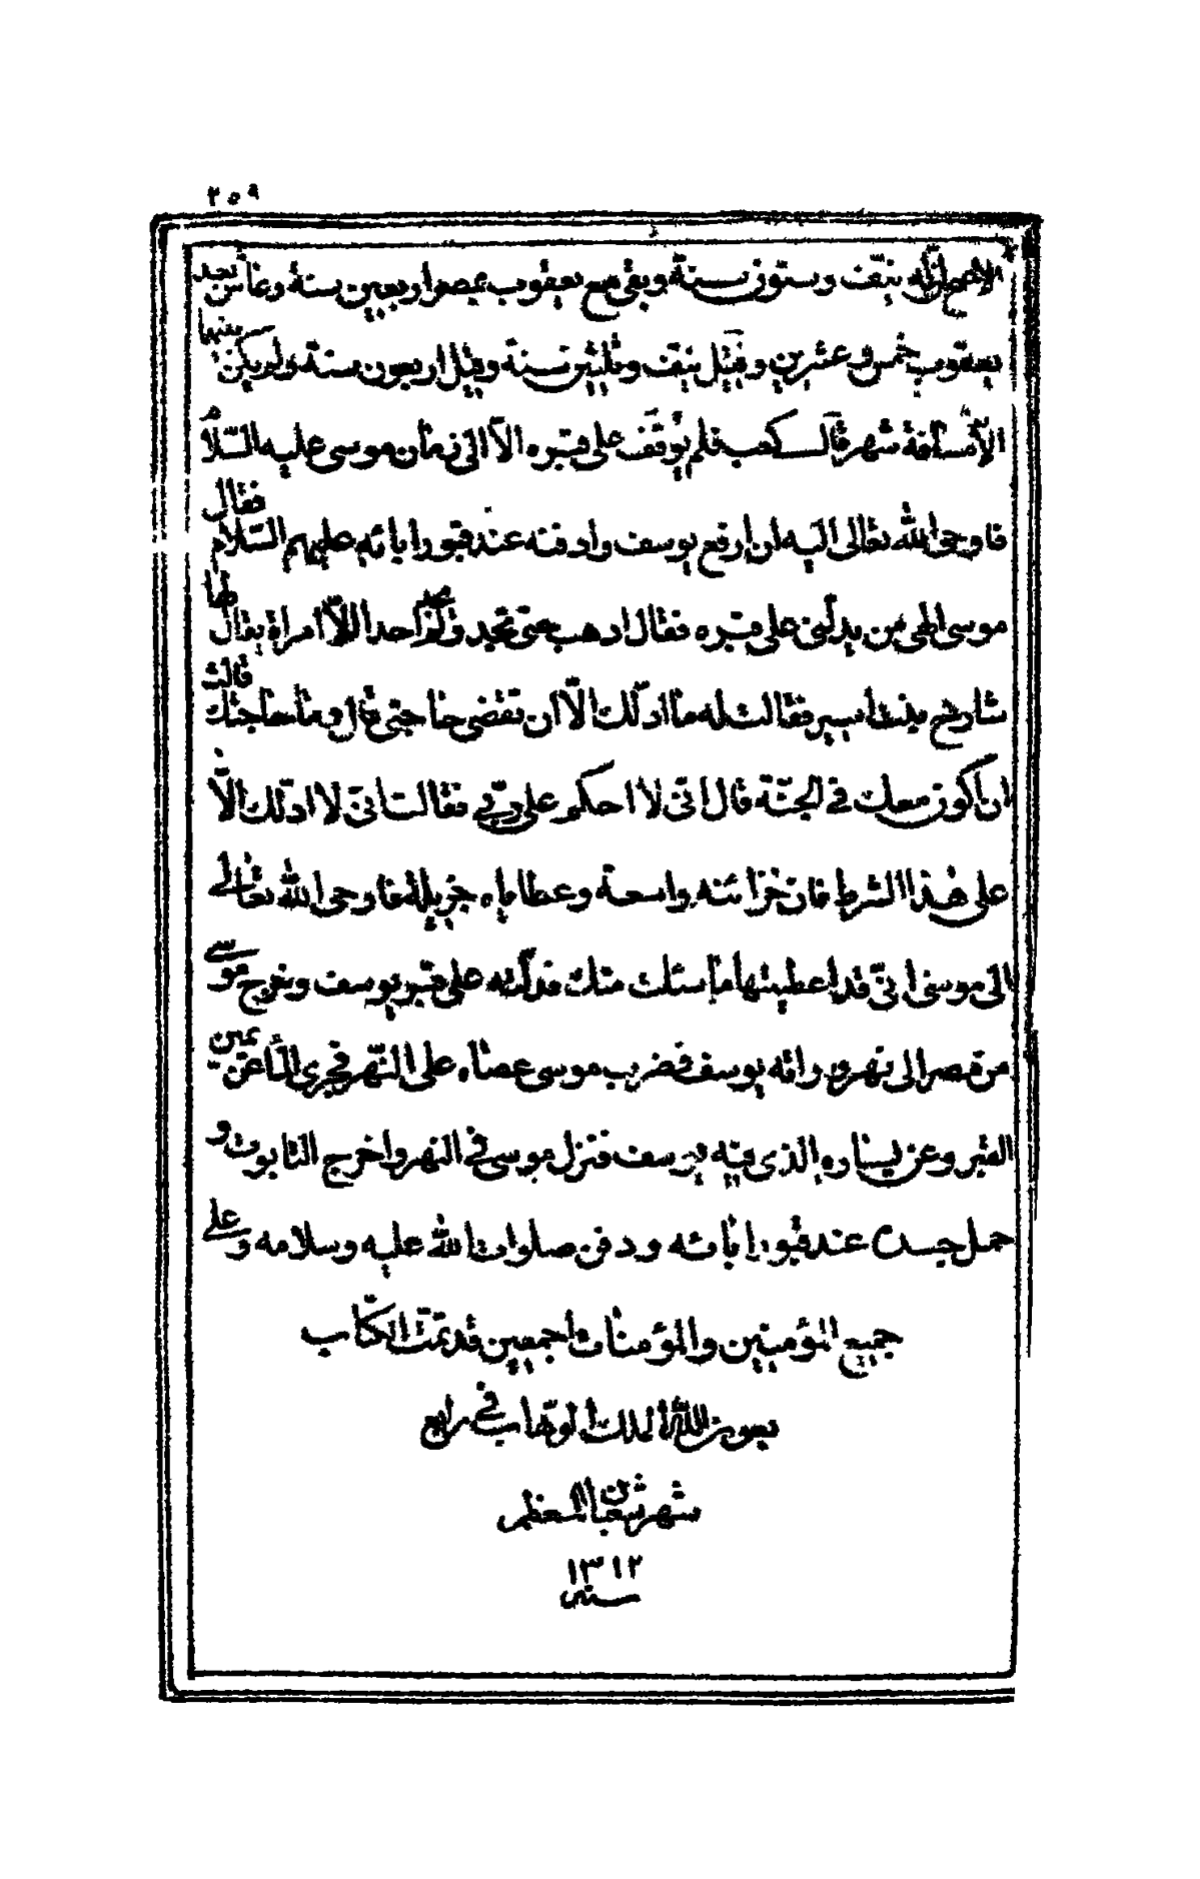 ٢٥٩
الاصح انّه نيّف وستون سنة وبقى مع يعقوب بمصر اربعين سنة وعاش بعد
يعقوب خمس وعشرين وقيل نيف وثلثين سنة وقيل اربعون سنة ولم يكن بينهما
الّا مسافة شهر قال كعب فلم يوقف على قبره الّا الى زمان موسى عليه السّلام
فاوحى الله تعالى اليه ان ارفع يوسف وادفنه عند قبور ابائه عليهم السّلام فقال
موسى الهى من يدلّنى على قبره فقال اذهب حتى تجد ولم تجد احدا الّا امراة يقال لها
شارخ بنت اسير فقالت له ما ادلّك الّا ان تقضى حاجتى قال وما حاجتك قالت
ان اكون معك فى الجنّة قال انّى لا احكم على ربّى فقالت انّى لا ادلّك الّا
على هذا الشرط فان خزائنه واسعة وعطاياه جزيلة فاوحى الله تعالى
الى موسى انّى قد اعطيتها ما سئلت منك فدلّته على قبر يوسف وخرج موسى
من مصر الى نهر وراثه يوسف فضرب موسى عصاه على النّهر فجرى الماء عن يمين
القبر وعن يساره الذى فيه يوسف فنزل موسى فى النهر واخرج التابوت و
حمل جسده عند قبور ابائه ودفن صلوات الله عليه وسلامه وعلى
جميع المؤمنين والمؤمنات اجمعين قد تمّت الكتاب
بعون الله الملك الوهّاب فى رابع
شهر شعبان المعظم
١٣١٢
سنه